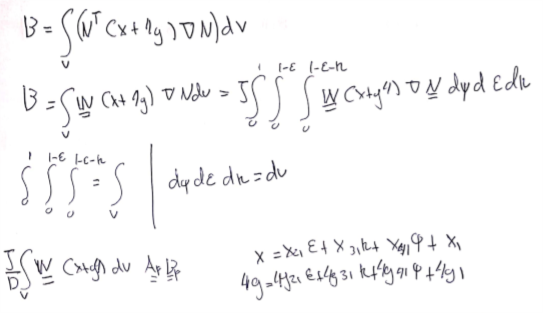 B = ∫ᵥ (Nᵀ (x + 4y) ∇ N) dv
B = ∫ᵥ W (x + 4y) ∇ N dv = J ∫₀¹ ∫₀^{1-ε} ∫₀^{1-ε-n} W (x + y4) ∇ N dφ dε dn
∫₀¹ ∫₀^{1-ε} ∫₀^{1-ε-n} = ∫ᵥ | dφ dε dn = dv
J/D ∫ᵥ W (x + 4y) dv A_p B_p
x = x₂₁ ε + x₃₁ n + x₄₁ φ + x₁
4y = 4y₂₁ ε + 4y₃₁ n + 4y₄₁ φ + 4y₁